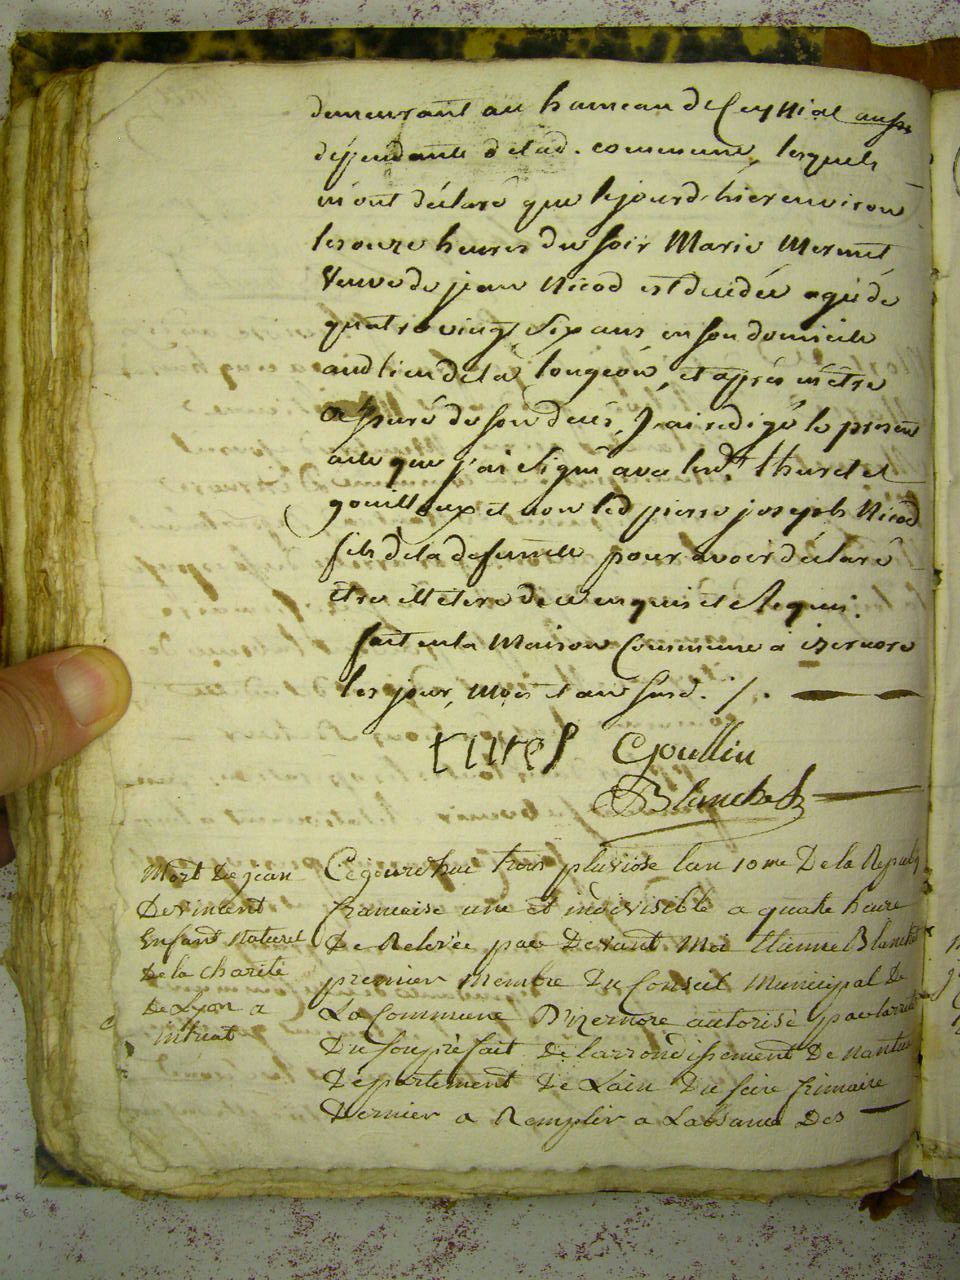 demeurant au hameau de Ceyssiat aussi
dépendante de lad. commune, lesquels
m'ont déclaré que lejourd'hier environ
les onze heures du soir Marie Mermet
Veuve de jean Nicod est décédée agée de
quatrevingt Six ans en son domicile
audt lieu de la tongeon, et aprés m'être
assuré de son décés, J'ai redigé le présent
acte que j'ai Signé avec lesdts thuret et
gouilloux et non led pierre joseph Nicod
fils de la defunte pour avoir déclaré
être illetéré de ce enquis et Requis.
fait en la Maison Commune a izernore
les jour, mois et an susd. /.
turel Goullin
Blanchet
Mort de jean
De vincent
Enfant Naturel
de la charité
de Lyon a
intriat
Cejourdhui trois pluviose lan 10me De la Republ
francaise une et indivisible a quatre heure
De Relevée par Devant Moi Etienne Blanchet
premier Membre Du Conseil Municipal De
La Commune D'izernore autorisé par larreté
Du souprefait de larrondissement De nantua
Departement De Lain Du seire frimaire
Dernier a Remplir a Labsance Des